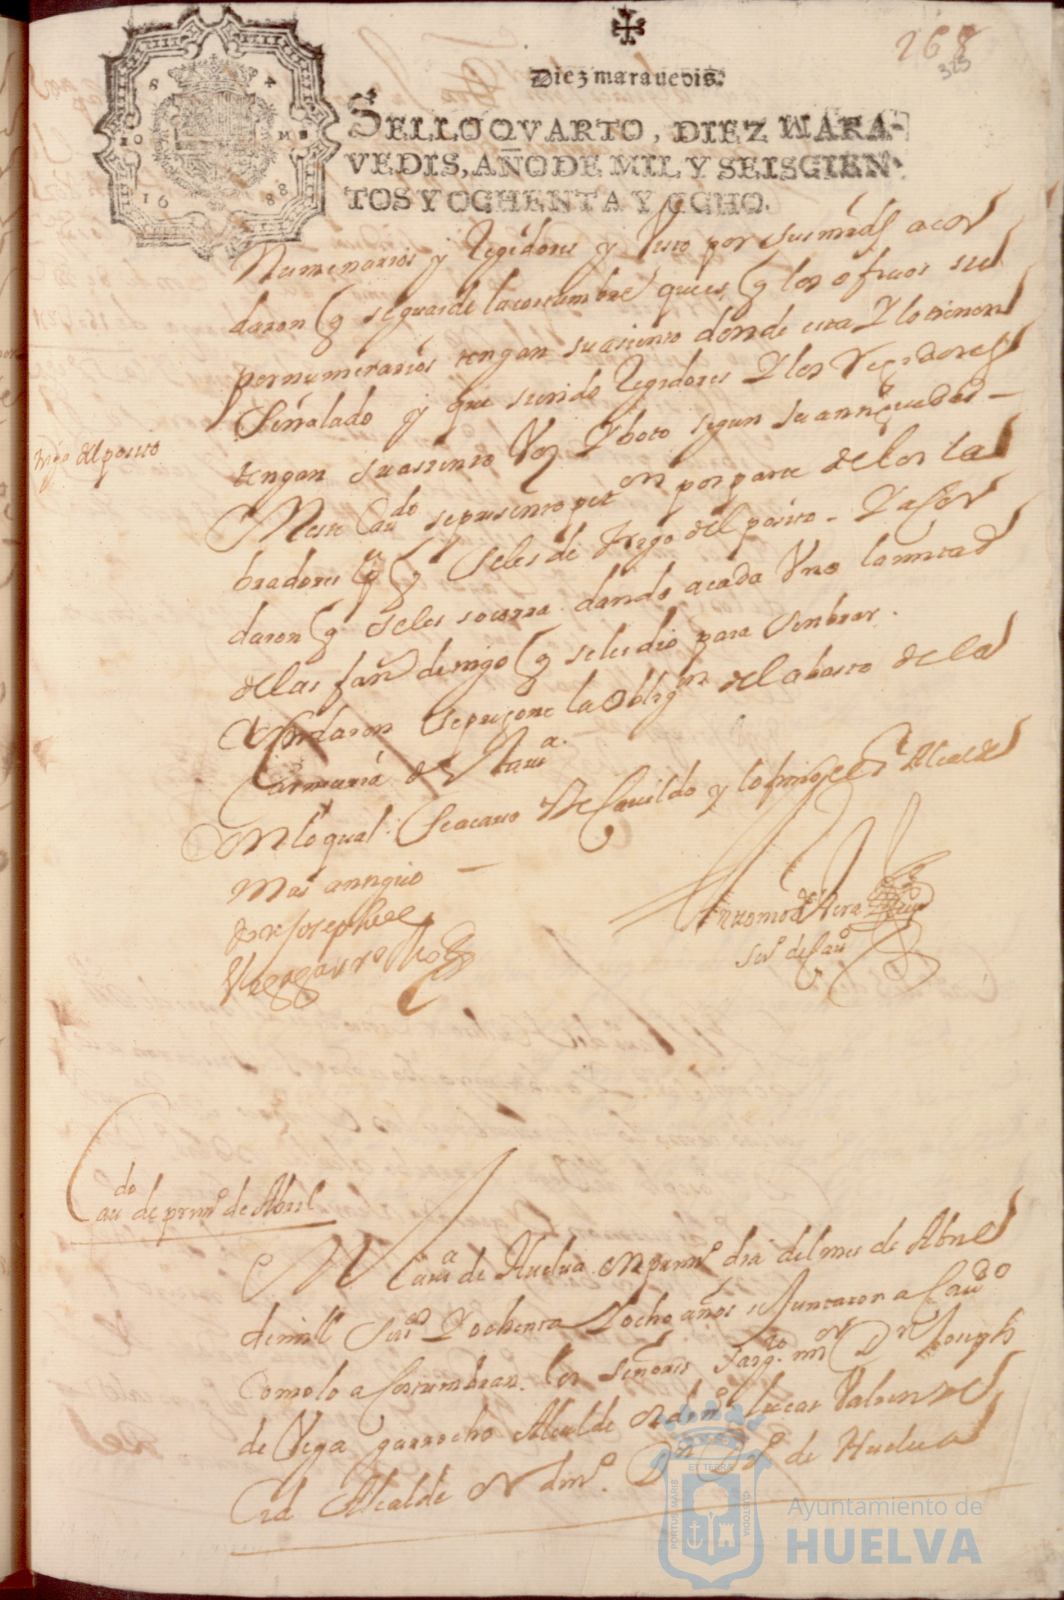 268
325
Diez marauedis.
SELLO QVARTO, DIEZ MARA-
VEDIS, AÑO DE MIL Y SEISCIEN
TOS Y OCHENTA Y OCHO.
1688
Numerarios y Regidores y Visto por sus mrds acor
daron q se guarde la costumbre que es q los ofizios su
pernumerarios tengan su asiento donde esta Y lo tienen
Señalado y que siendo Regidores Y los Regidores
tengan su asiento Voz Y boto segun su antiguedad
trigo del posito
Neste Caudo se presento peton por parte de los la
bradores q Seles de trigo del posito - Y acor
daron q Seles socorra dando a cada Vno la mitad
de las fans de trigo q seles dio para senbrar.
Acordaron Se pregone la obligon del abasto de la
Carniceria de Va
En lo qual Se acavo este Cavildo y lo firmo el Alcalde
mas antiguo
Dr Joseph de
Vega garrocho
Antonio de Vera
Sno de Cauo
Caudo de primo de Abril
En la Va de Huelua en primo dia del mes de Abril
de mill Seisos Y ochenta Y ocho años se Juntaron a Caudo
Como lo acostumbran los Señores Dn Joseph
de Vega garrocho Alcalde ordino lucas
Alcalde ordino Dn de Huelua
PORTUS MARIS ET TERRÆ CUSTODIA
Ayuntamiento de
HUELVA